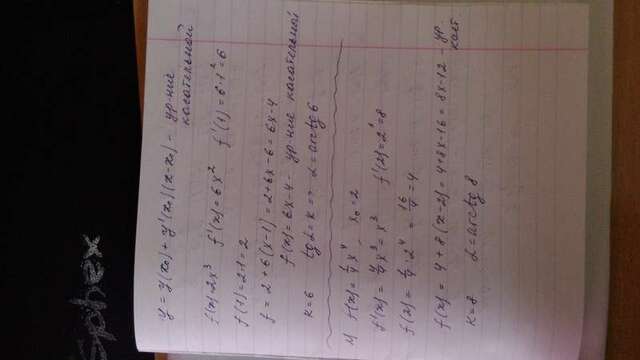 y = y(x₀) + y'(x₀)(x-x₀) - ур-ние
касательной
f(x)=2x³ f'(x)=6x² f'(1)=6·1²=6
f(1)=2·1=2
f = 2+6(x-1)=2+6x-6=6x-4
f(x)=6x-4 - ур-ние касательной
k=6 tgα=k => α=arctg 6
f(x)=1/4 x⁴, x₀=2
f'(x)=4/4 x³=x³ f'(2)=2³=8
f(2)=1/4·2⁴ = 16/4 =4
f(x)=4+8(x-2)=4+8x-16=8x-12 - ур.
кас
k=8 α=arctg 8
Sphex